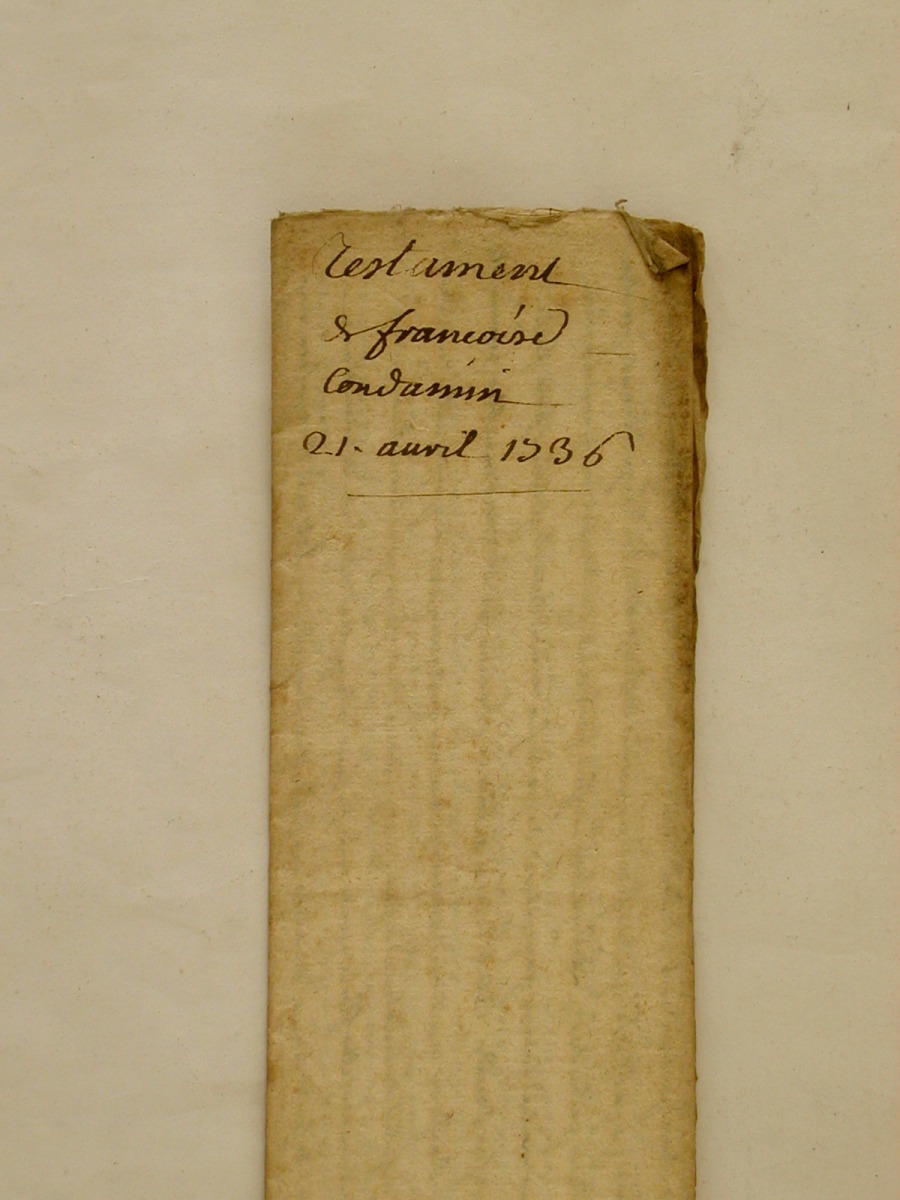 Testament
de francoise
Condamin
21. auril 1736